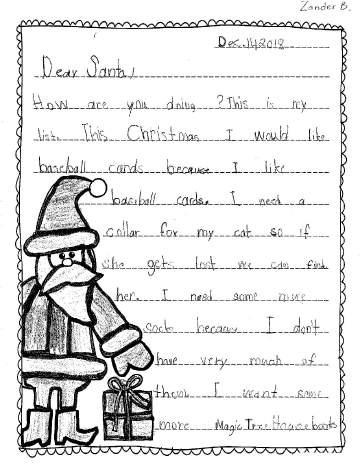 Zander B.
Dec. 14 2018
Dear Santa,
How are you doing ? This is my
list. This Christmas I would like
baseball cards because I like
baseball cards. I need a
collar for my cat so if
she gets lost we can find
her. I need some more
socks because I don't
have very much of
them I want some
more Magic Tree House books